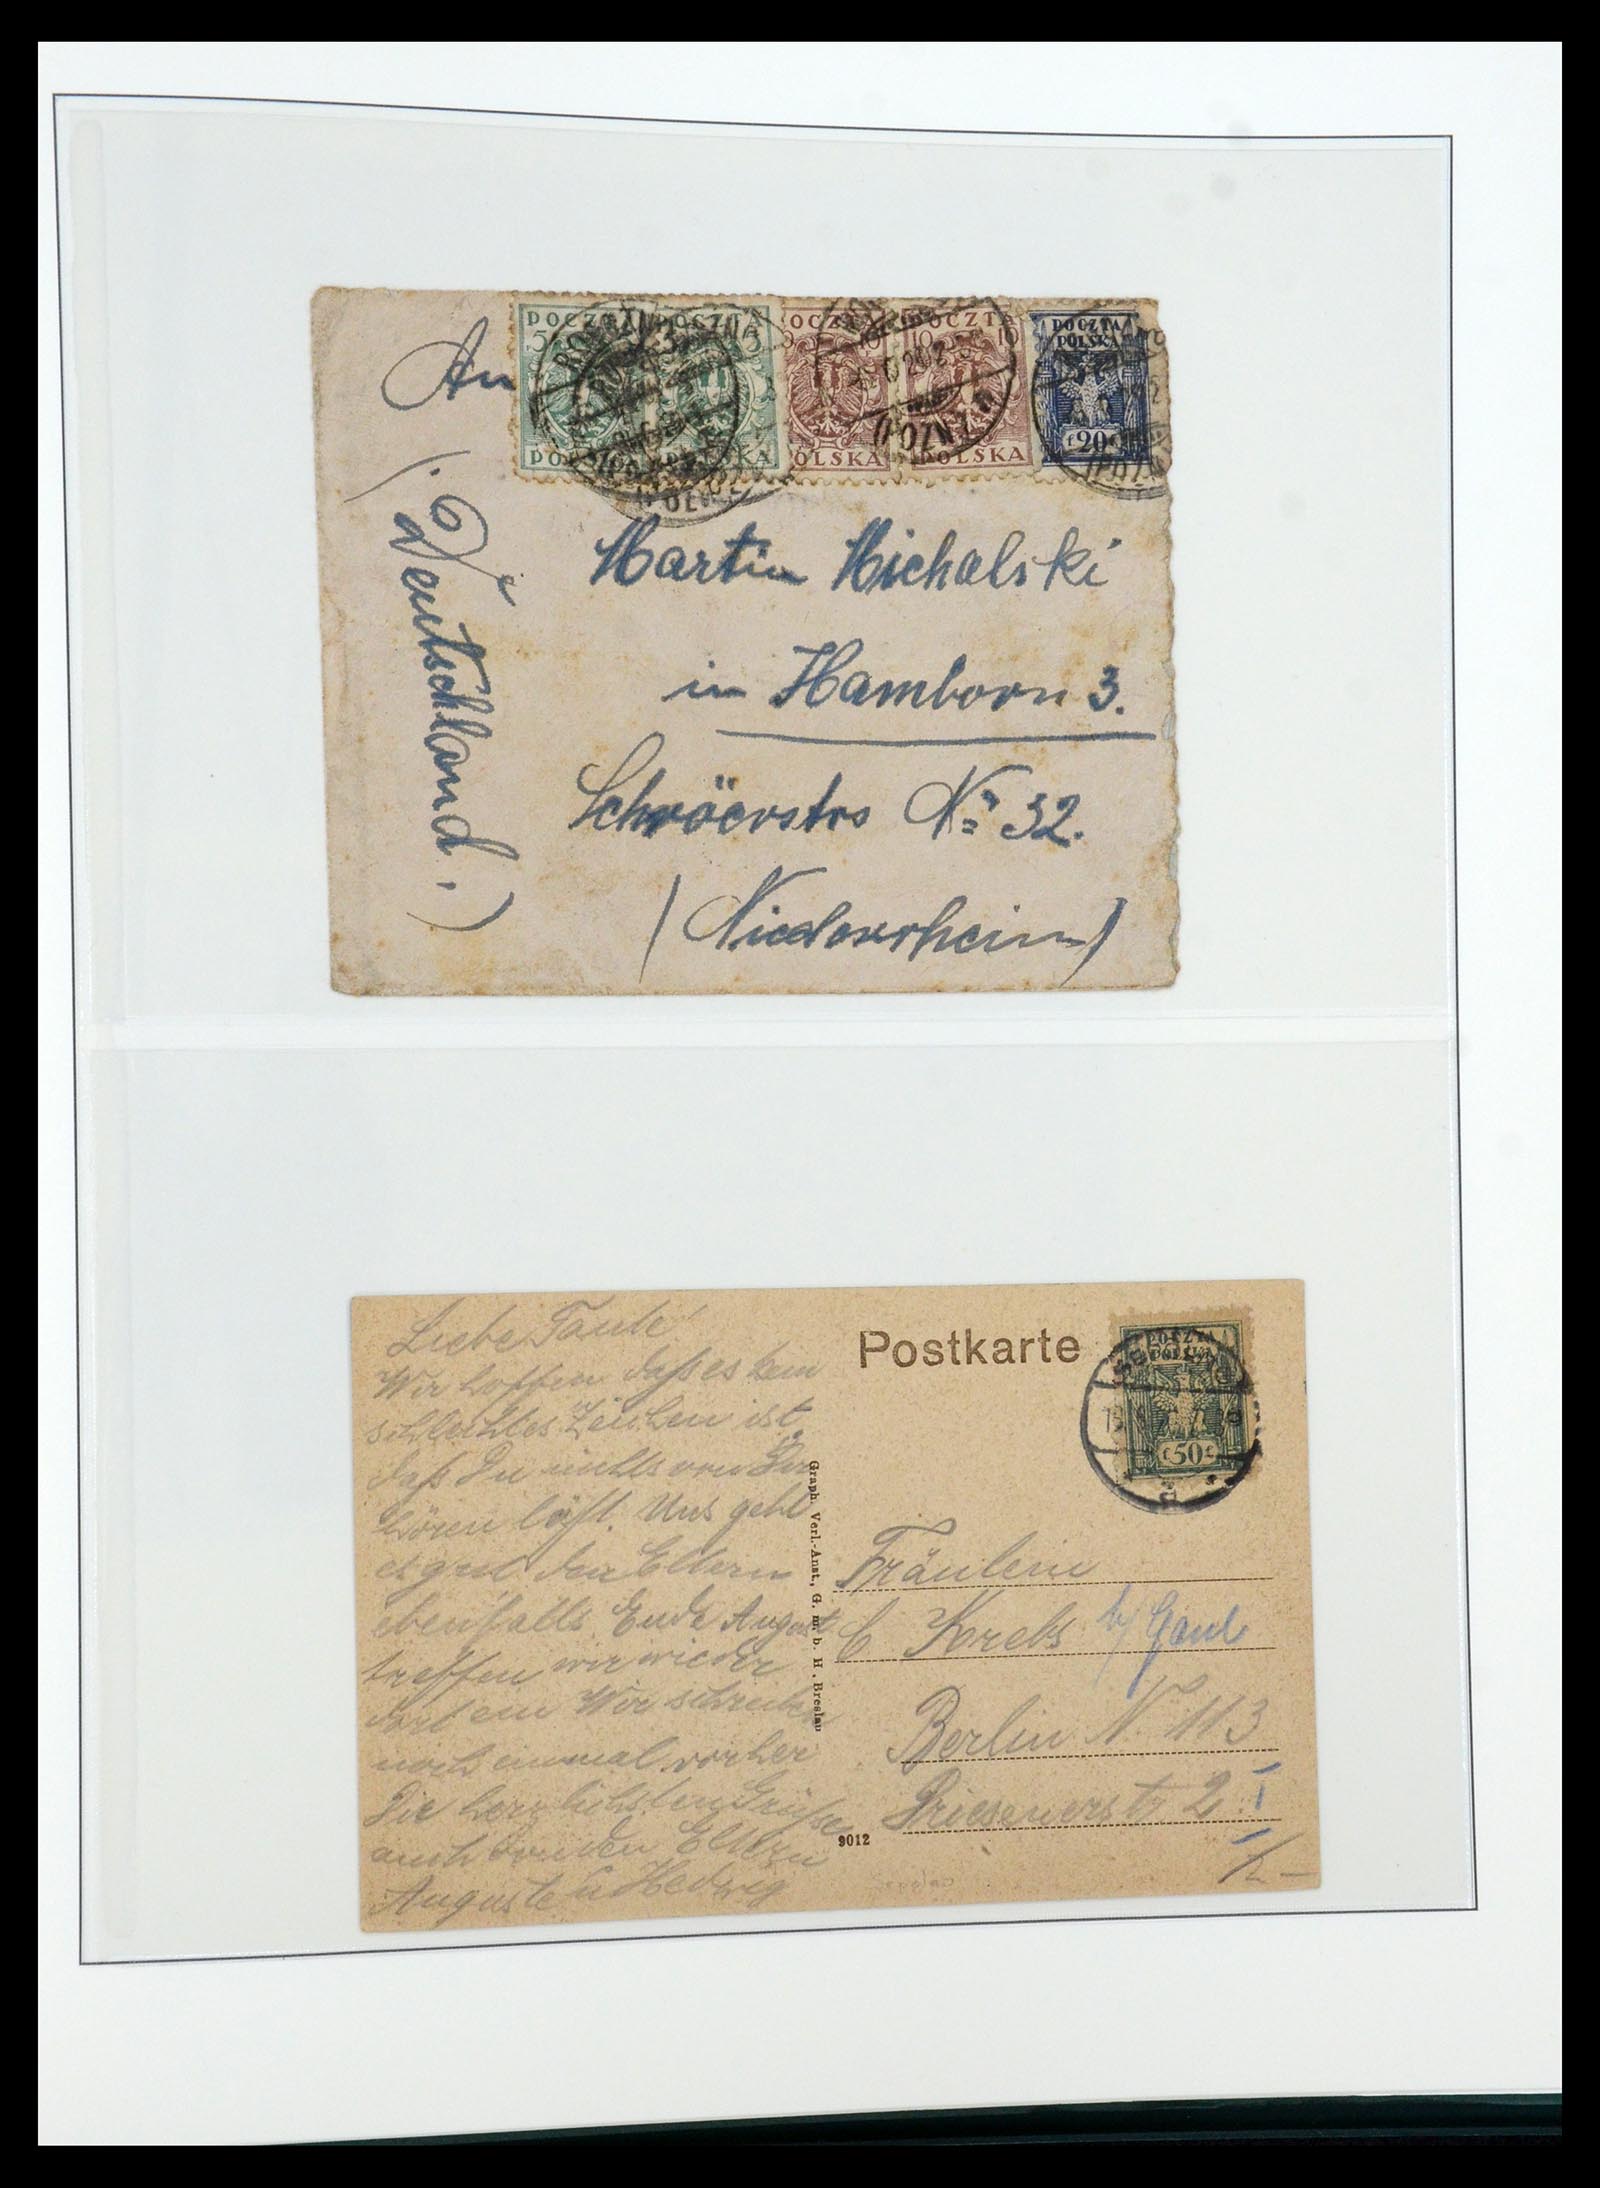 An
Martin Michalski
in Hamborn 3.
Schröerstrs No 32.
(Niederrhein)
(Deutschland.)
POCZTA POCZTA
5 5
POLSKA
POCZTA
10 10 10
POLSKA POLSKA
POCZTA
POLSKA
f 20 f
Liebe Tante!
Wir hoffen daß es kein
schlechtes Zeichen ist,
daß Du nichts von Dir
hören läßt. Uns geht
es gut den Eltern
ebenfalls. Ende August
treffen wir wieder
dort ein Wir schreiben
noch einmal vorher
Die herzlichsten Grüße
auch von den Eltern
Auguste u Hedwig
Postkarte
POCZTA
POLSKA
f 50 f
Graph. Verl.-Anst., G. m. b. H., Breslau
9012
Fräulein
C Krebs b/ Gaul
Berlin N. 113
2 I